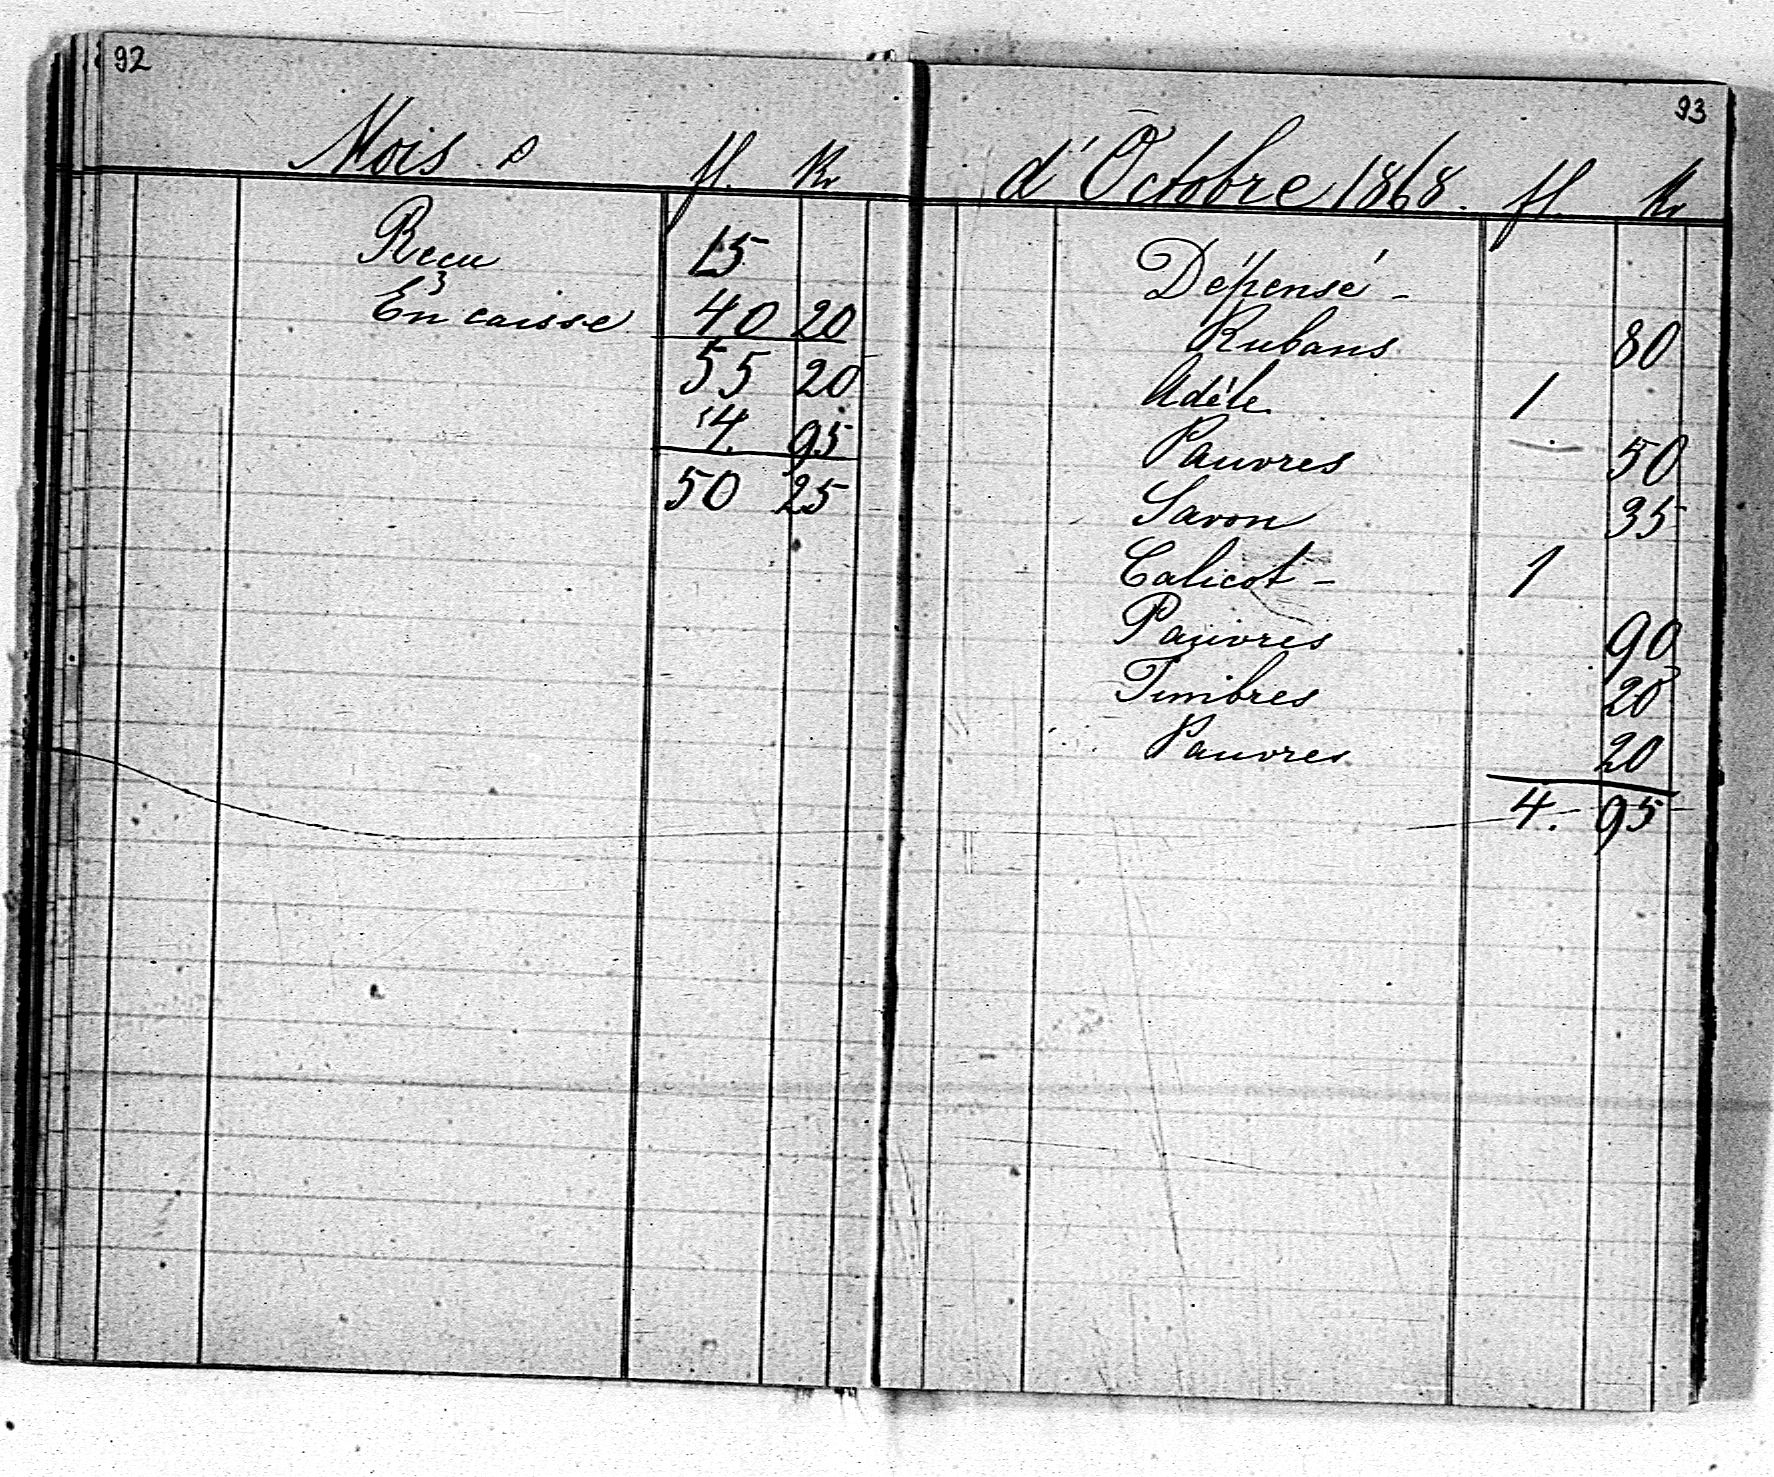 92
Mois fl. Kr
Reçu 15
En caisse 40 20
55 20
4. 95
50 25
93
d'Octobre 1868. fl. Kr
Dépensé -
Rubans 80
Adèle 1
Pauvres 50
Savon 35
Calicot - 1
Pauvres 90
Timbres 20
Pauvres 20
4. 95